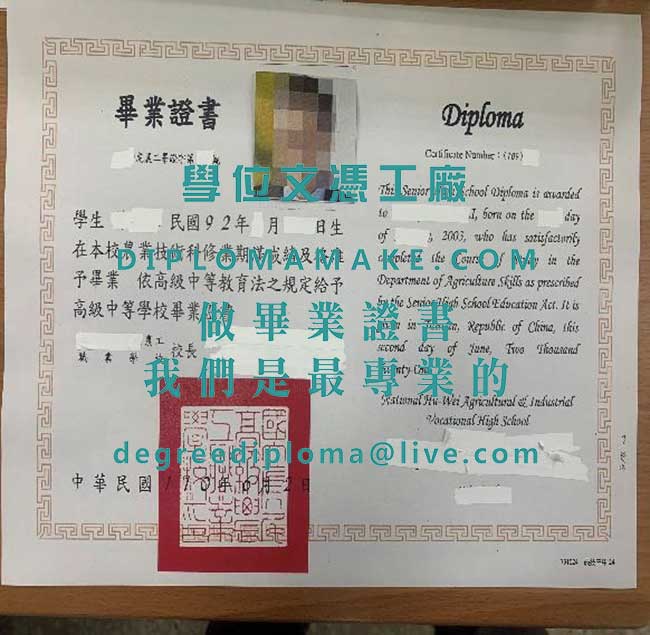 畢業證書
Diploma
Certificate Number: (109)
學位文憑工廠
This Senior High School Diploma is awarded
to born on the day
of , 2003, who has satisfactorily
學生 民國92年 月 日生
在本校農業技術科修業期滿成績及格准
DIPLOMAMAKE.COM
completed the Course of Study in the
予畢業 依高級中等教育法之規定給予
Department of Agriculture Skills as prescribed
高級中等學校畢業證書
by the Senior High School Education Act. It is
做畢業證書
given in Republic of China, this
校長
second day of June, Two Thousand
我們是最專業的
National Hu-Wei Agricultural & Industrial
Vocational High School
degreediploma@live.com
中華民國110年6月2日